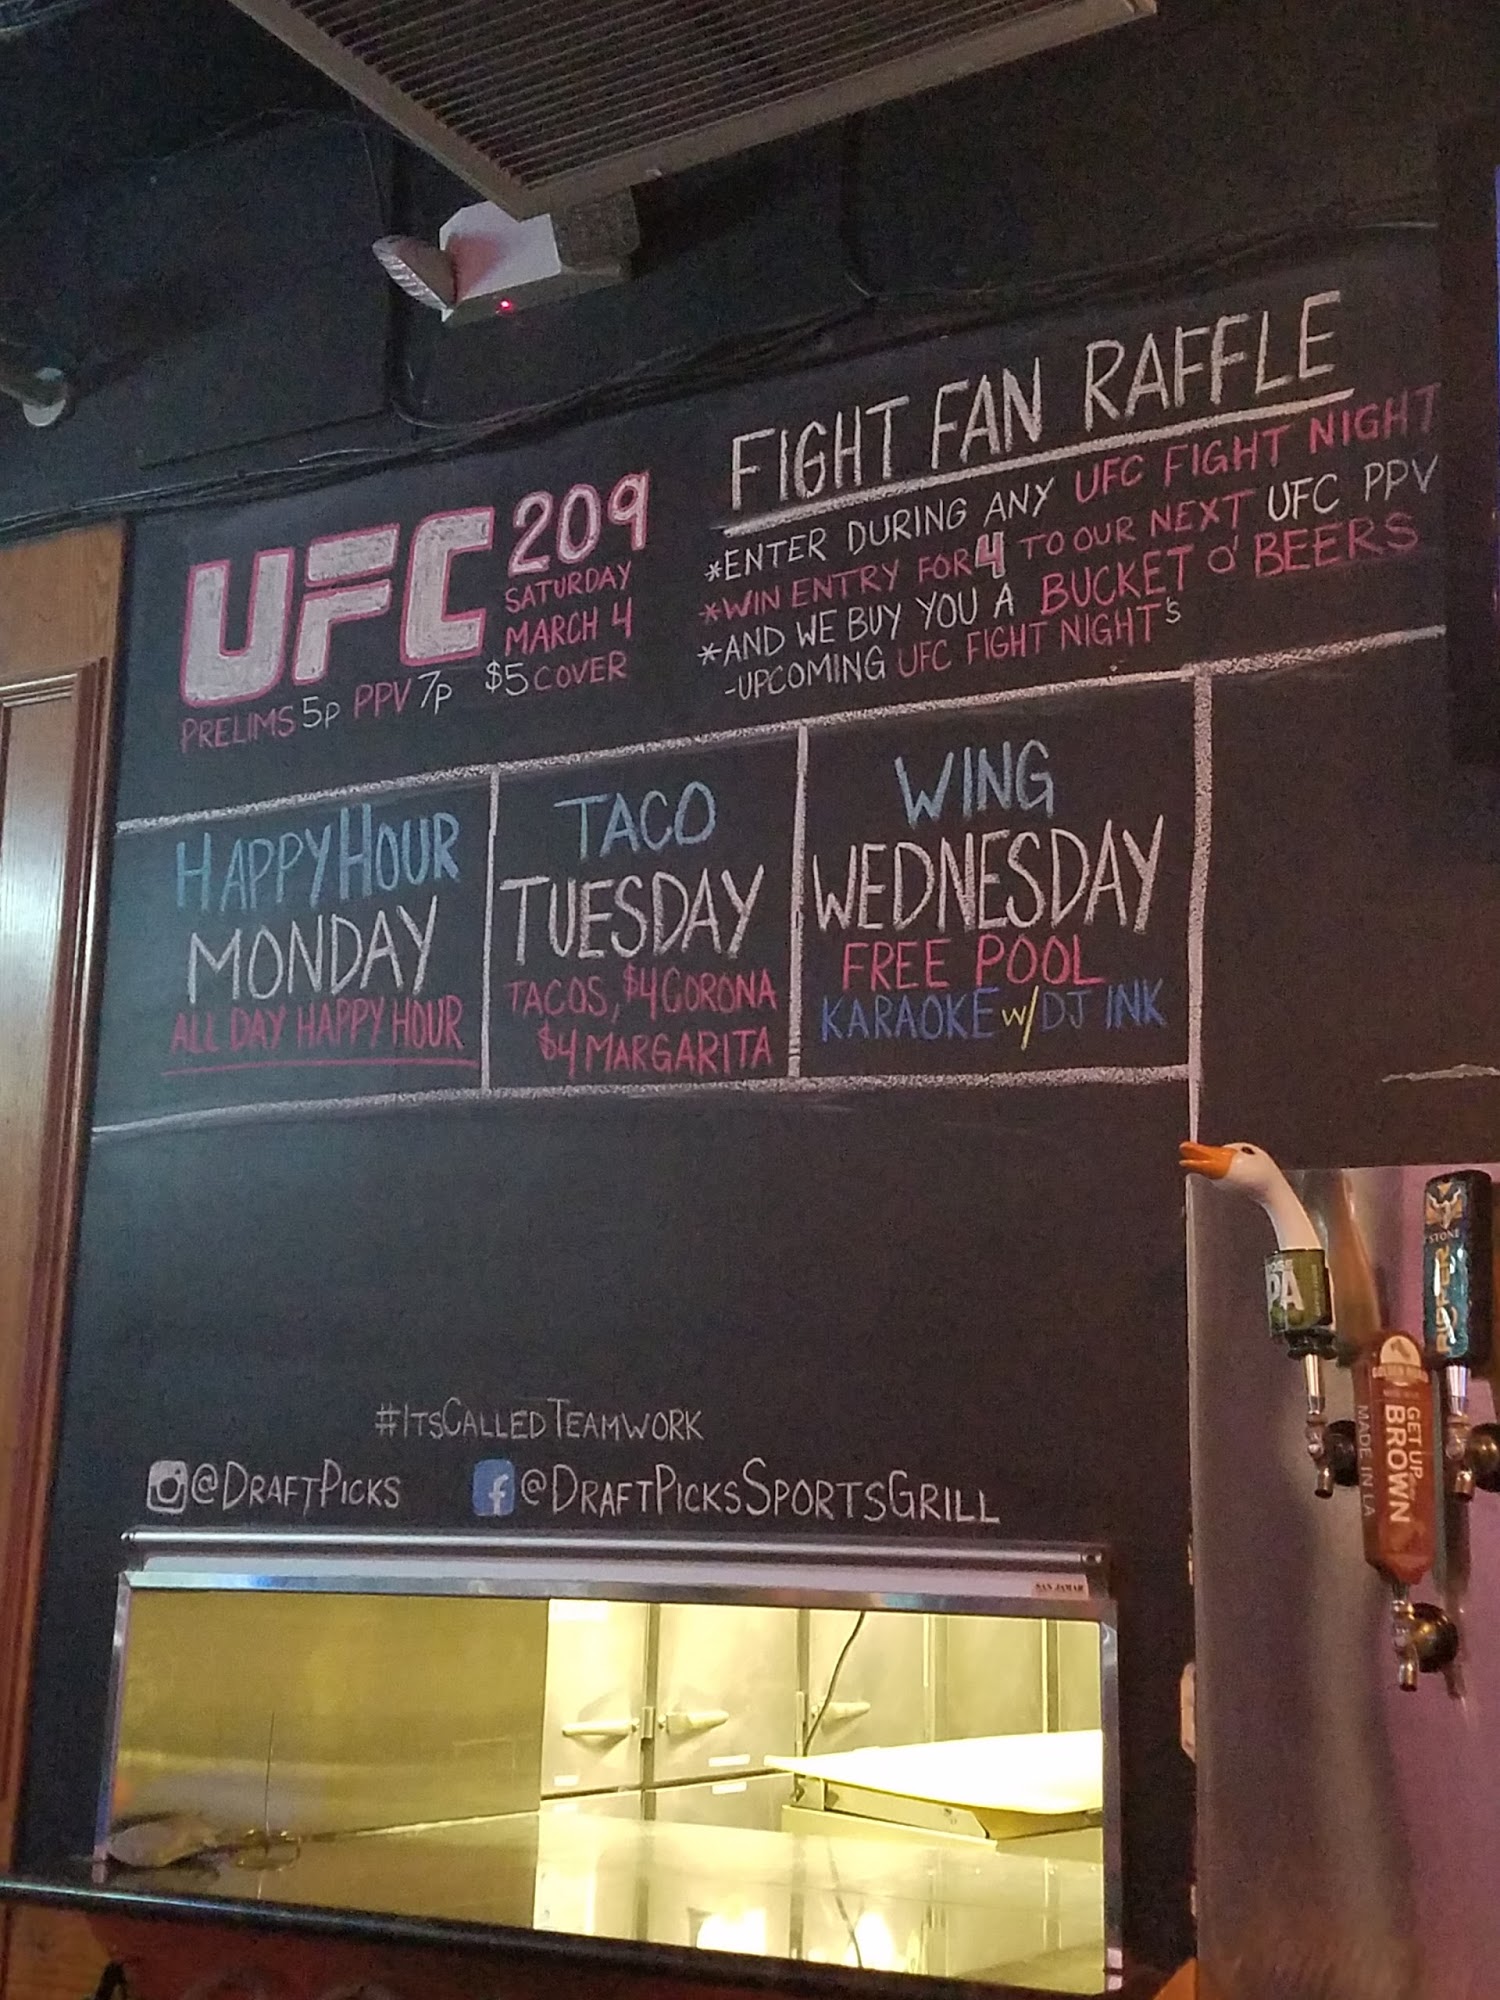 FIGHT FAN RAFFLE
*ENTER DURING ANY UFC FIGHT NIGHT
*WIN ENTRY FOR 4 TO OUR NEXT UFC PPV
*AND WE BUY YOU A BUCKET O' BEERS
-UPCOMING UFC FIGHT NIGHT's
UFC 209
SATURDAY
MARCH 4
$5 COVER
PRELIMS 5P PPV 7P
HAPPY HOUR
MONDAY
ALL DAY HAPPY HOUR
TACO
TUESDAY
TACOS, $4 CORONA
$4 MARGARITA
WING
WEDNESDAY
FREE POOL
KARAOKE w/ DJ INK
#ITSCALLEDTEAMWORK
@DRAFTPICKS
f @DRAFTPICKSSPORTSGRILL
SAN JAMAR
STONE
RIPPER
GET UP
BROWN
MADE IN LA